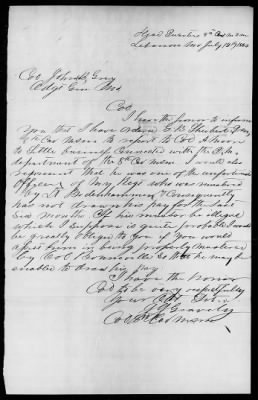 Head Quarters 8th Cav M S M
Lebanon Mo July 18th 1864
Col John B Gray
Adgt Gen Mo
Col
I have the honor to inform
You that I have orderd E. B.
Cav M S M to report to Col
to Settle business Connected with the
department of the 8th Cav M S M. I would also
represent that he was one of the unfortunate
Officers of my Regt who was mustered
by Lt & Consequently
has not drawn his pay for the last
Six months If his muster be illegal
which I Suppose is quite probable I would
be greatly obliged to you if you would
assist him in being properly mustered
by Col Bonneville So that he may be
enabled to draw his pay
I have the Honor
Col to be very respectfully
Your Obt Servt
J J Gravely
Col 8th Cav M S M